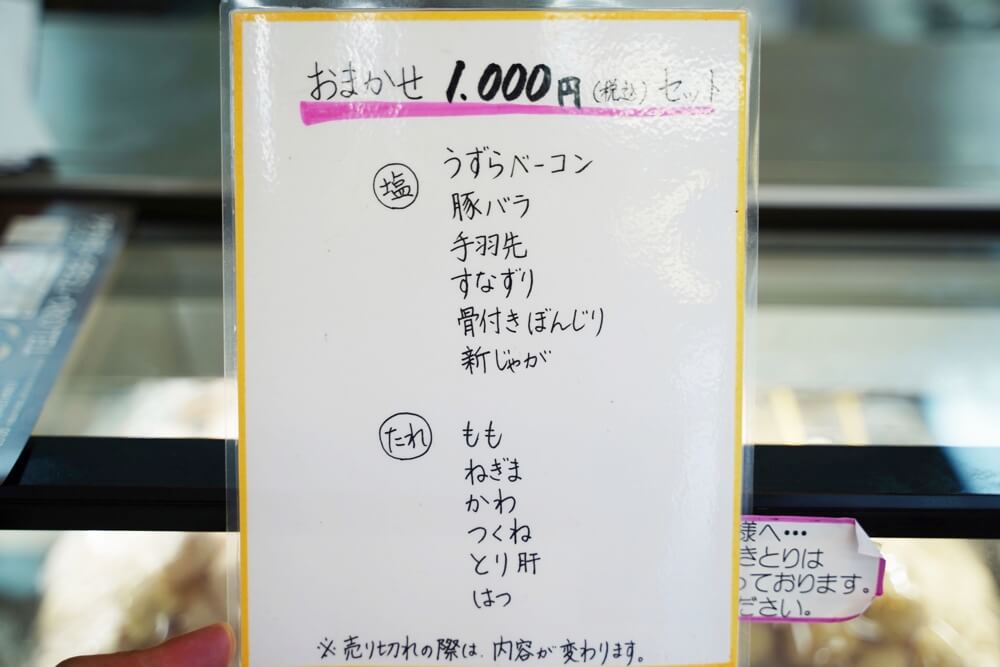 おまかせ 1.000円(税込)セット
塩 うずらベーコン
豚バラ
手羽先
すなずり
骨付きぼんじり
新じゃが
たれ もも
ねぎま
かわ
つくね
とり肝
はつ
※売り切れの際は、内容が変わります。
様へ・・・
きとりは
っております。
ださい。